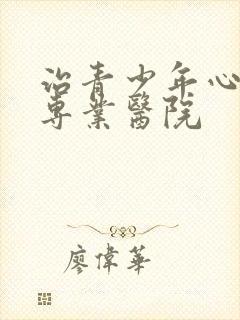 治青少年心
專業醫院
廖偉華